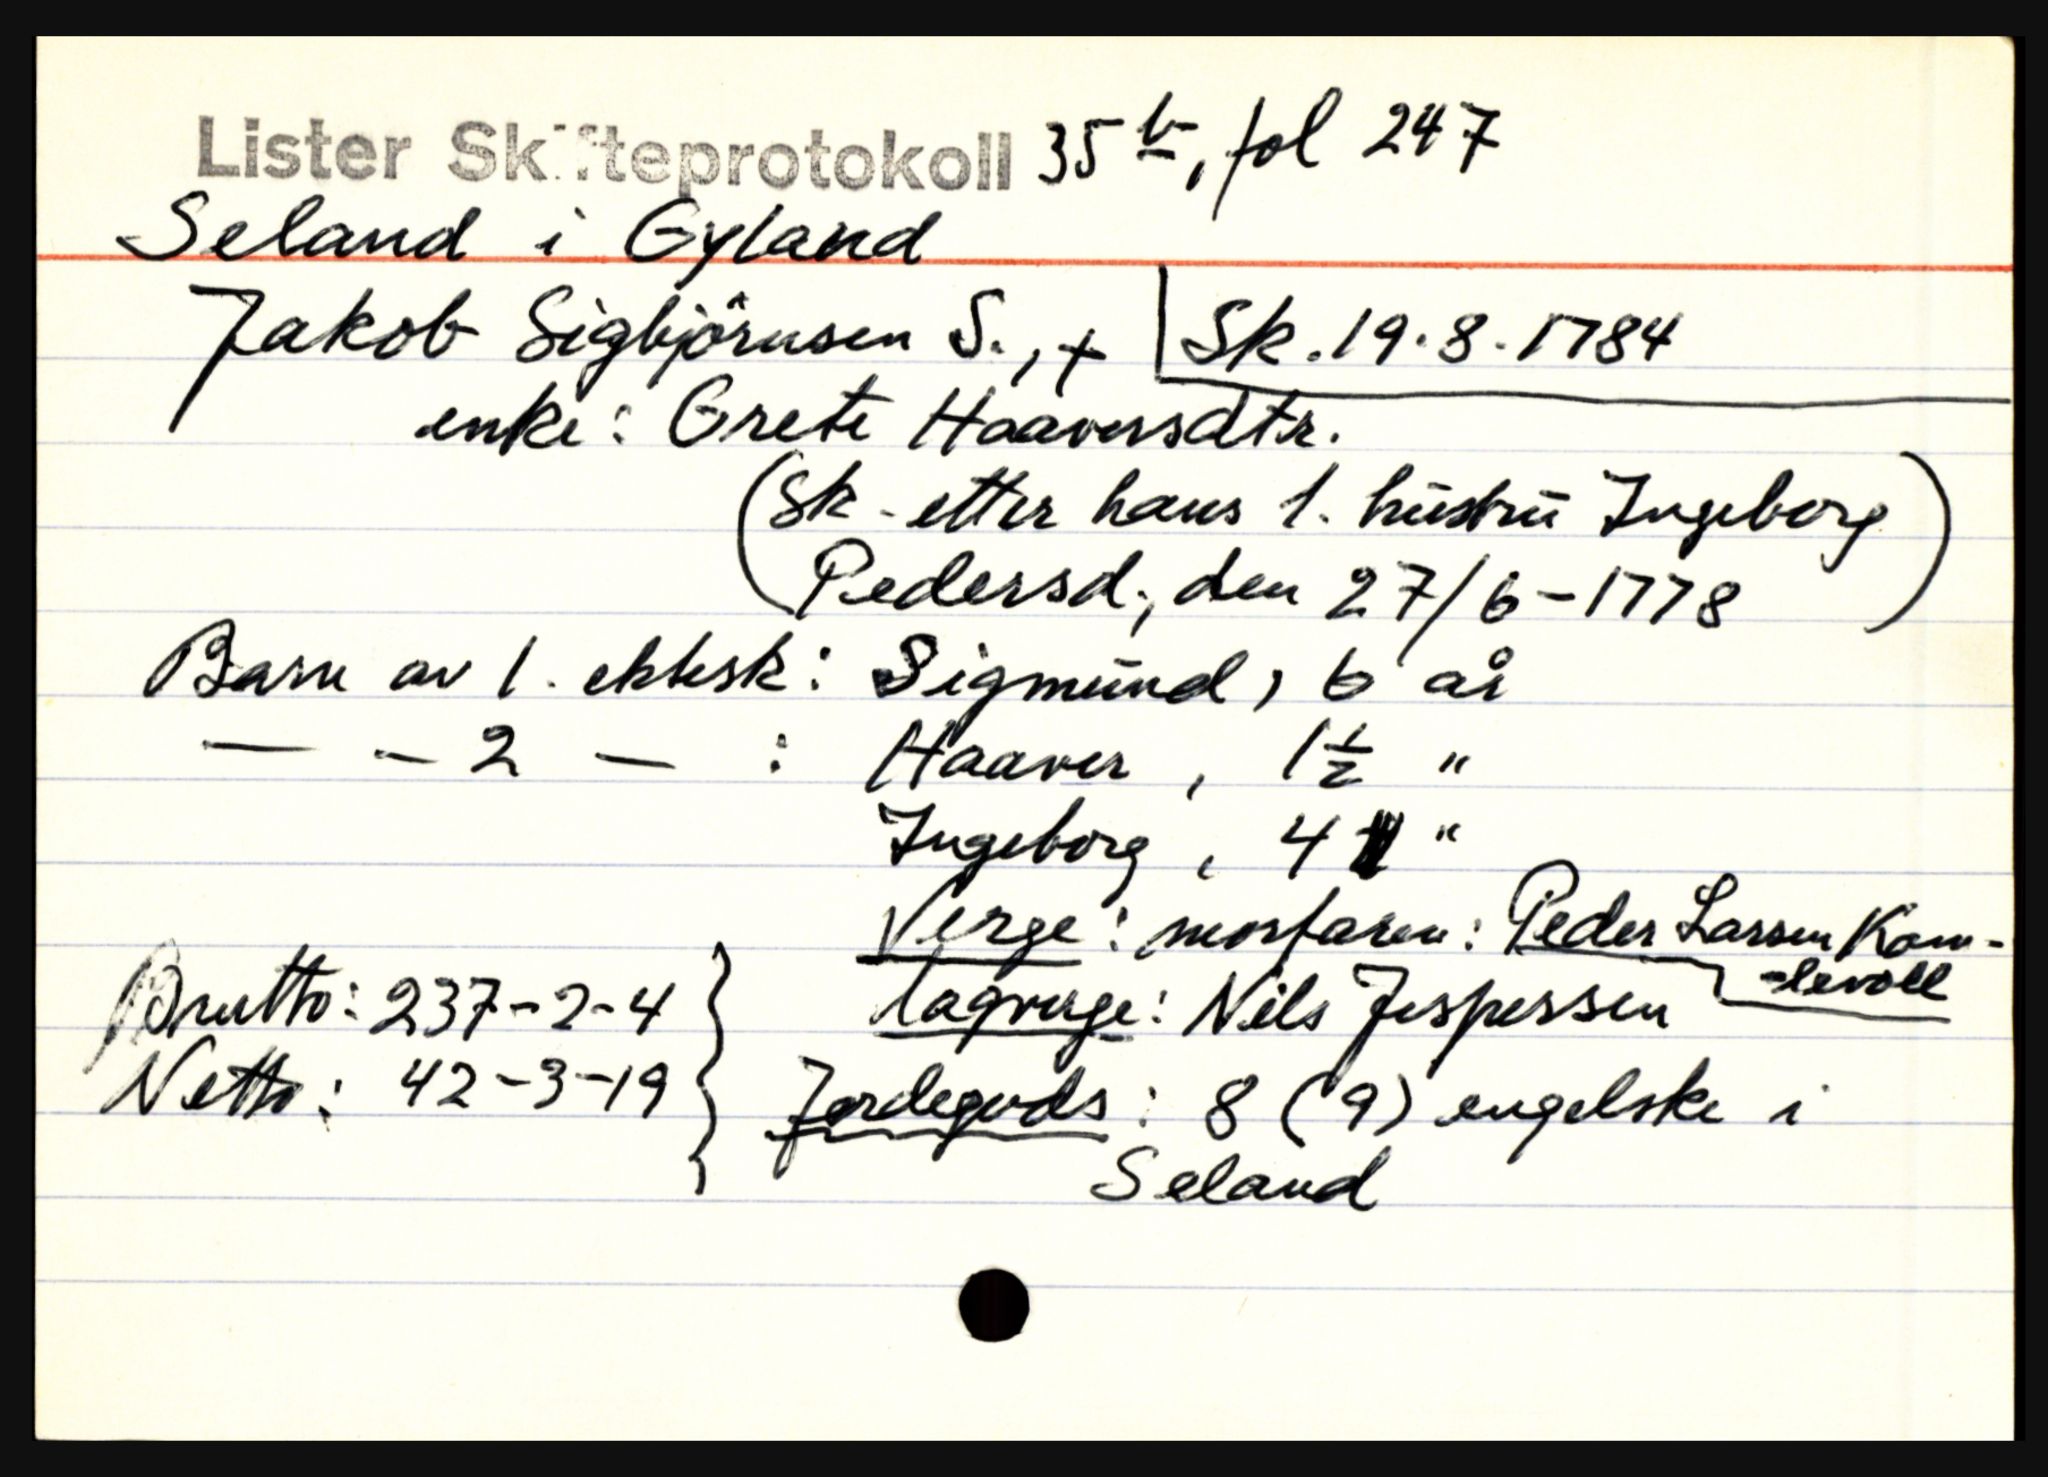 Lister Skifteprotokoll 35 b, fol 247
Seland i Gyland
Jakob Sigbjörnsen S., + Sk. 19.8.1784
enke: Grete Haaversdtr.
(Sk. etter hans 1. hustru Ingeborg
Pedersd., den 27/6-1778)
Barn av 1. ektesk: Sigmund, 6 år
— - 2 — : Haaver, 1½ "
Ingeborg, 4 "
Verge: morfaren: Peder Larsen Kom-
-levoll
Brutto: 237-2-4
lagverge: Nils Jespersen
Netto: 42-3-19
Jordegods: 8 (9) engelske i
Seland